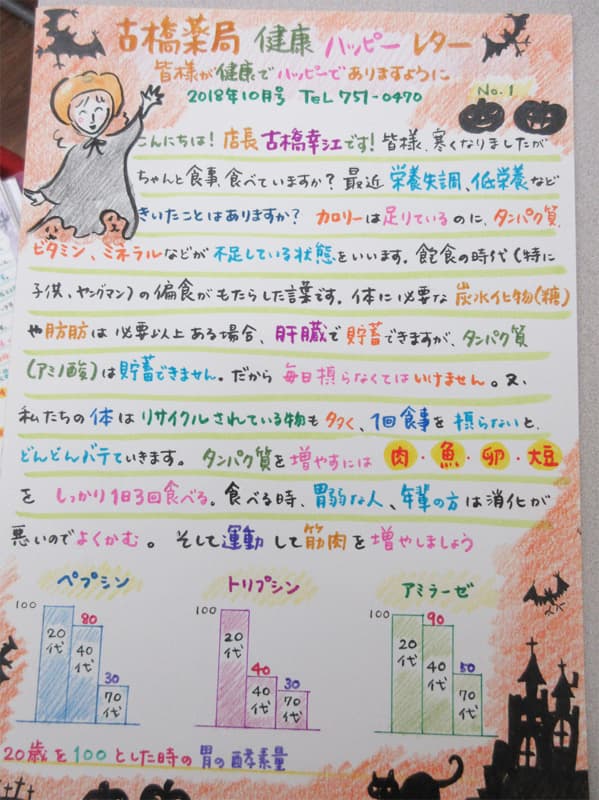 古橋薬局 健康 ハッピー レター
皆様が健康でハッピーでありますように
2018年10月号 TEL 751-0470
No.1
こんにちは! 店長 古橋幸江です! 皆様、寒くなりましたが
ちゃんと食事、食べていますか? 最近 栄養失調、低栄養など
きいたことはありますか? カロリーは足りているのに、タンパク質、
ビタミン、ミネラルなどが 不足している状態をいいます。飽食の時代(特に
子供、ヤングマン)の偏食がもたらした言葉です。体に必要な 炭水化物(糖)
や肪肪は必要以上ある場合、肝臓で貯蓄できますが、タンパク質
(アミノ酸)は貯蓄できません。だから 毎日摂らなくてはいけません。又、
私たちの体はリサイクルされている物も多く、1回食事を摂らないと、
どんどんバテていきます。 タンパク質を増やすには 肉・魚・卵・大豆
を しっかり1日3回食べる。食べる時、胃弱な人、年輩の方は消化が
悪いのでよくかむ。 そして運動して筋肉を増やしましょう
ペプシン
100
80
30
20代
40代
70代
トリプシン
100
40
30
20代
40代
70代
アミラーゼ
100
90
50
20代
40代
70代
20歳を100とした時の胃の酵素量